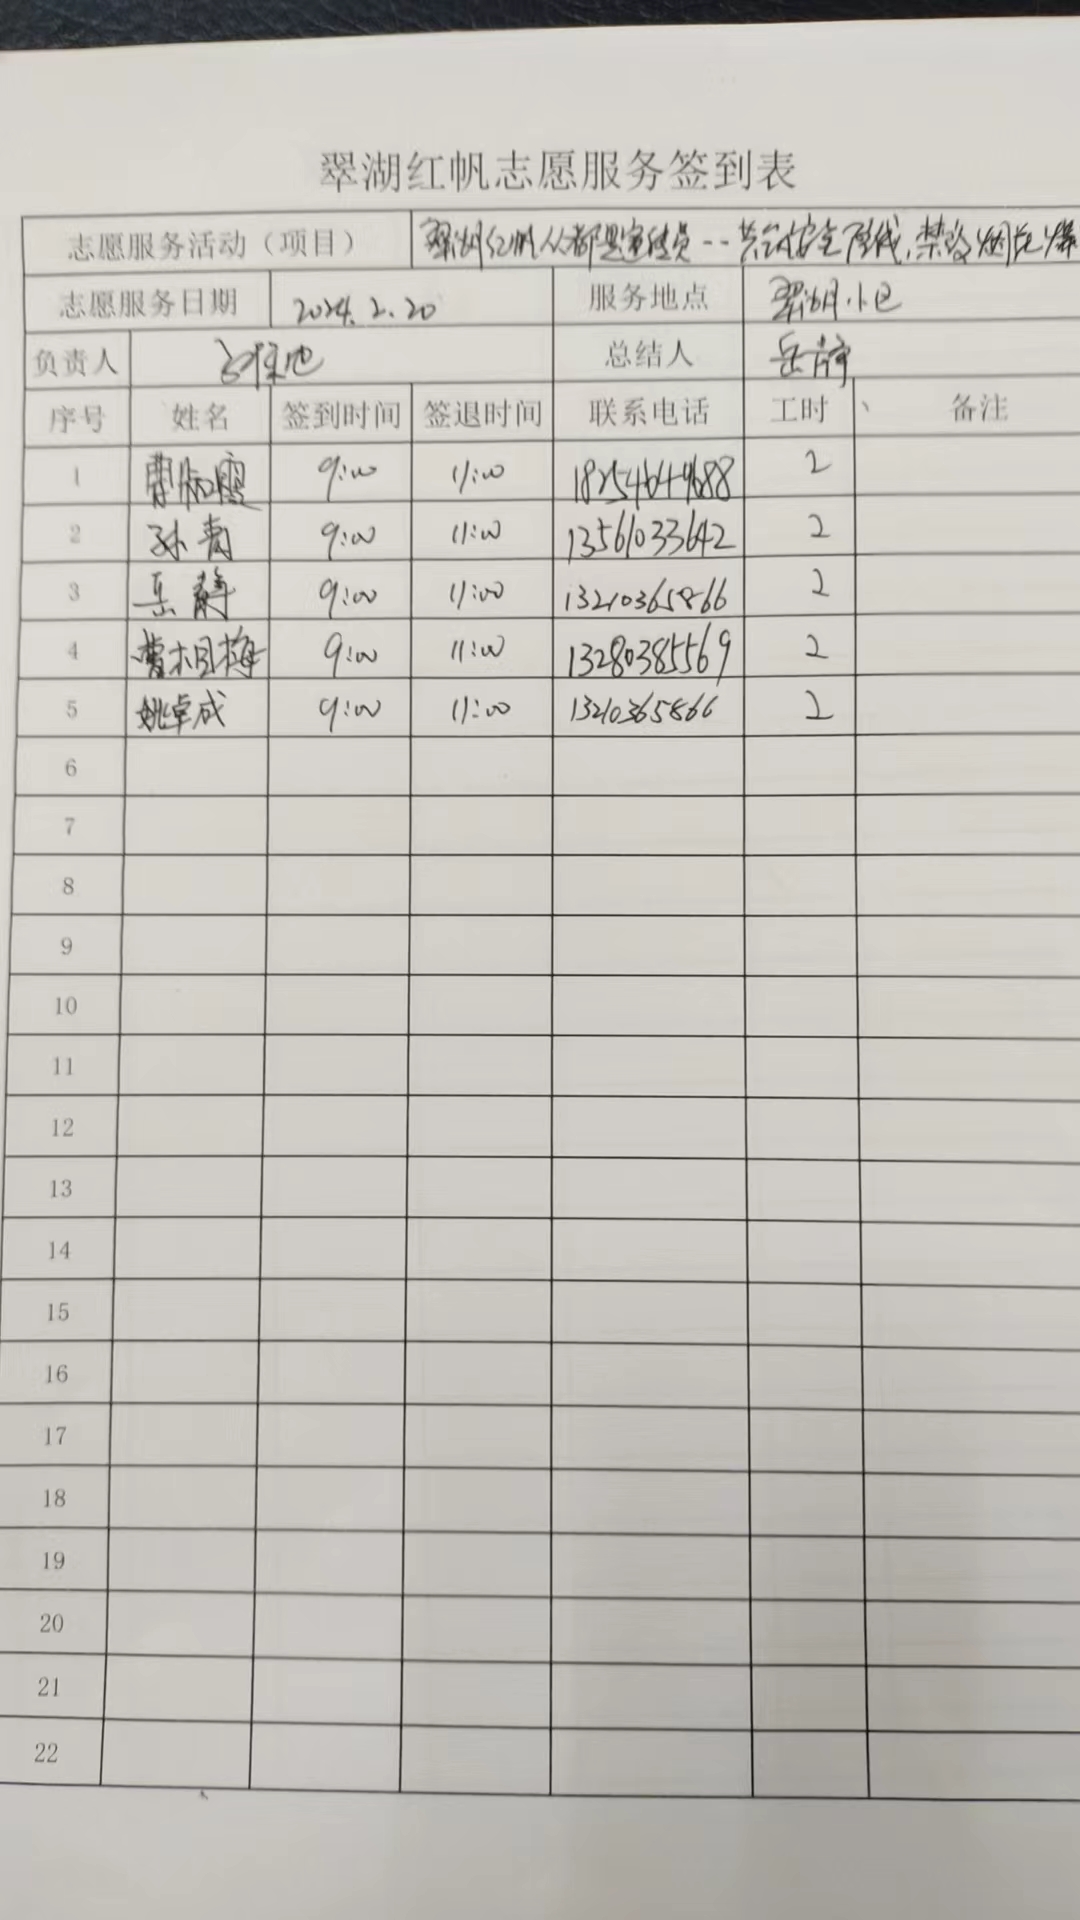 翠湖红帆志愿服务签到表
志愿服务活动（项目） 翠湖红帆人都是宣传员--共筑安全防线,禁放烟花爆
志愿服务日期 2024.2.20 服务地点 翠湖小区
负责人 总结人 岳静
序号 姓名 签到时间 签退时间 联系电话 工时 备注
1 9:00 11:00 18254649688 2
2 孙青 9:00 11:00 13561033642 2
3 岳静 9:00 11:00 13210365866 2
4 曹相梅 9:00 11:00 13280385569 2
5 姚卓成 9:00 11:00 13210365866 2
6
7
8
9
10
11
12
13
14
15
16
17
18
19
20
21
22